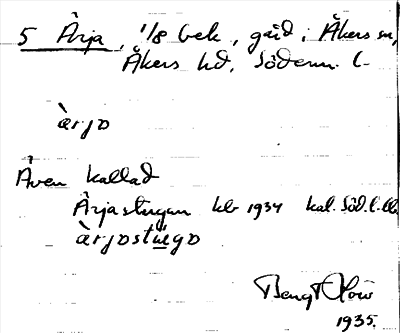 5 Ärja, 1/8 bek, gård i Åkers sn,
Åkers hd, Söderm. l.
àrjo
Även kallad
Ärjastugan kb 1934 kal. Söd. l.
àrjostugo
Bengt
1935.